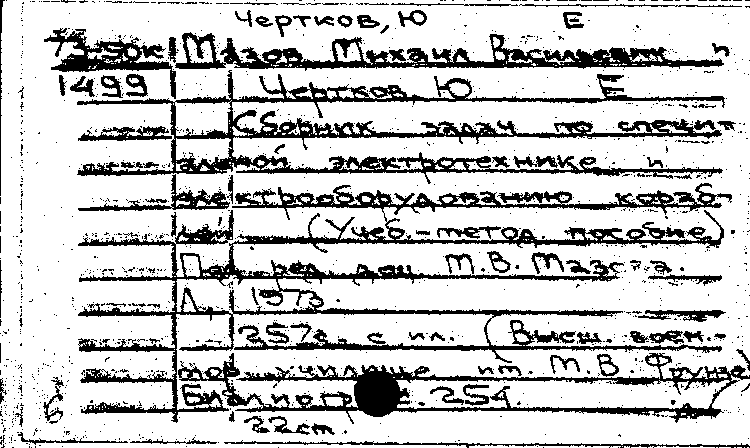 Чертков, Ю Е
73-50к Мазов Михаил Васильевич и
1499 Чертков Ю Е
Сборник задач по специ
альной электротехнике и
электрооборудованию кораб-
лей (Учеб.-метод. пособие).
Под ред. доц. М.В. Мазова.
Л., 1973.
257с. с ил. (Высш. воен.-
мор. училище им. М.В. Фрунзе)
254.
22см.
6